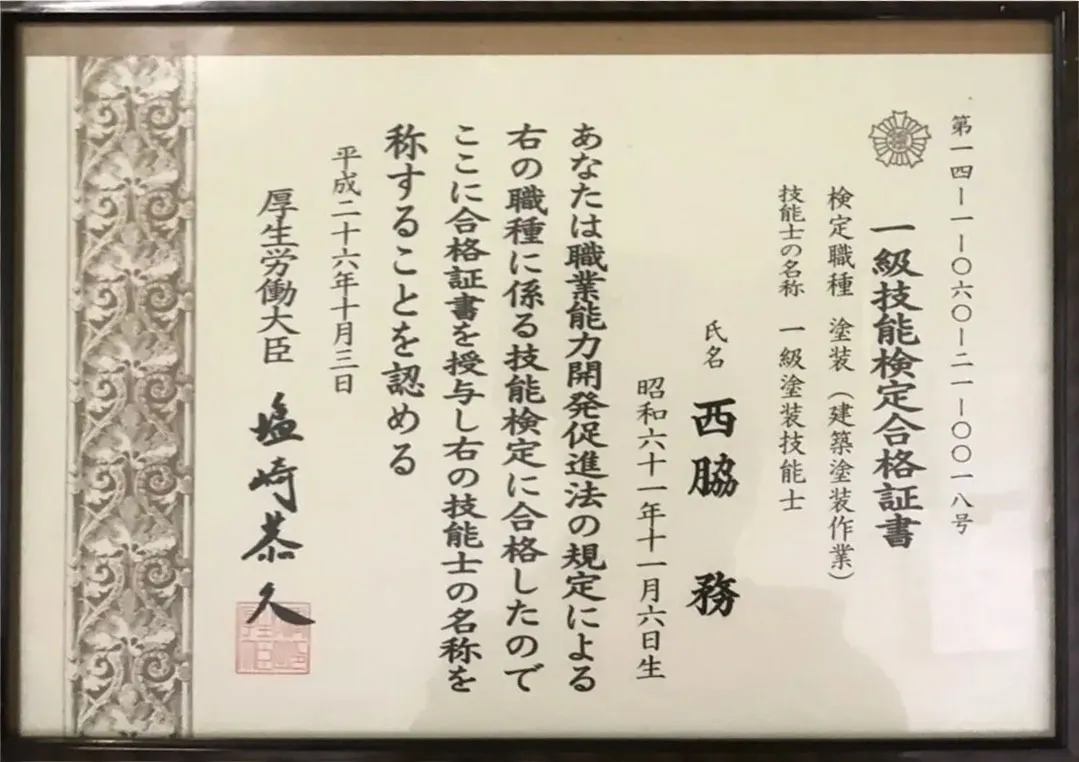 第一四ー一ー〇六〇ー二一ー〇〇一八号
一級技能検定合格証書
検定職種 塗装（建築塗装作業）
技能士の名称 一級塗装技能士
氏名 西脇 務
昭和六十一年十一月六日生
あなたは職業能力開発促進法の規定による
右の職種に係る技能検定に合格したので
ここに合格証書を授与し右の技能士の名称を
称することを認める
平成二十六年十月三日
厚生労働大臣 塩崎恭久